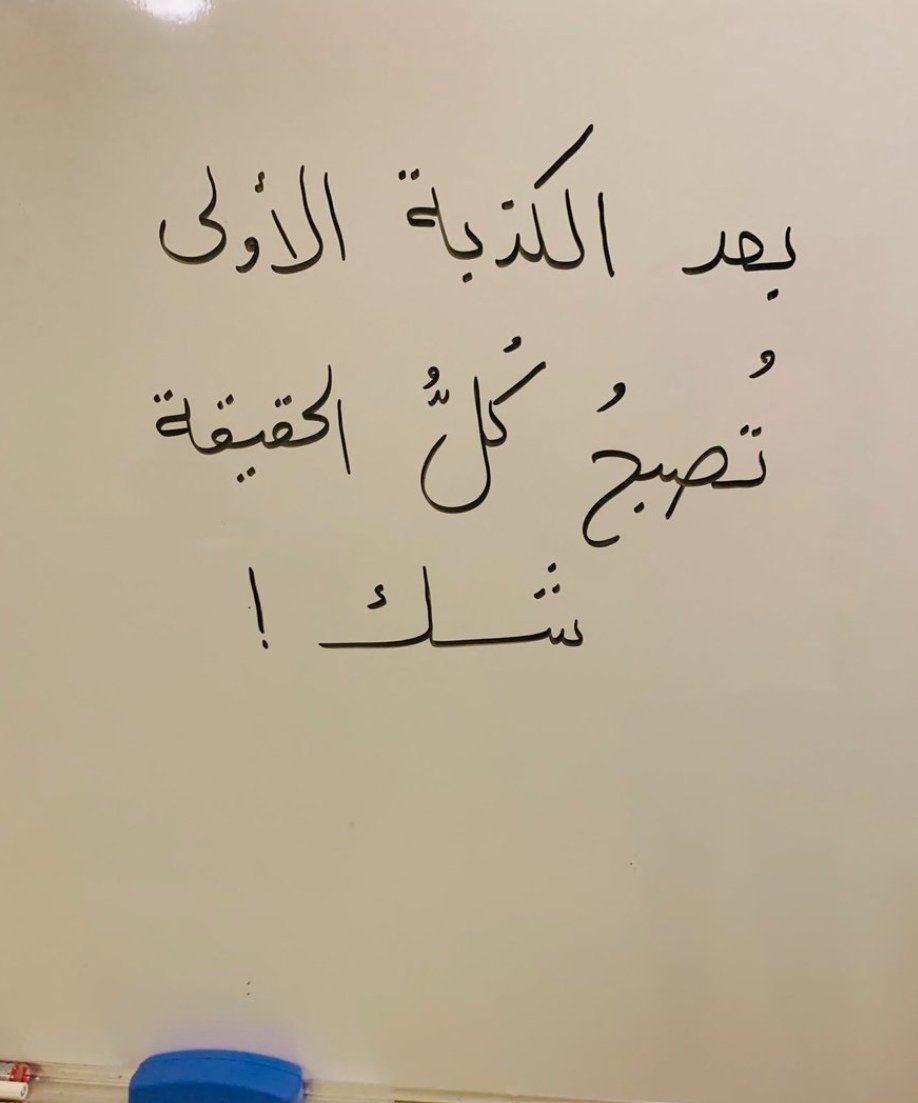 بعد الكذبة الأولى
تُصبحُ كُلُّ الحقيقة
شك !